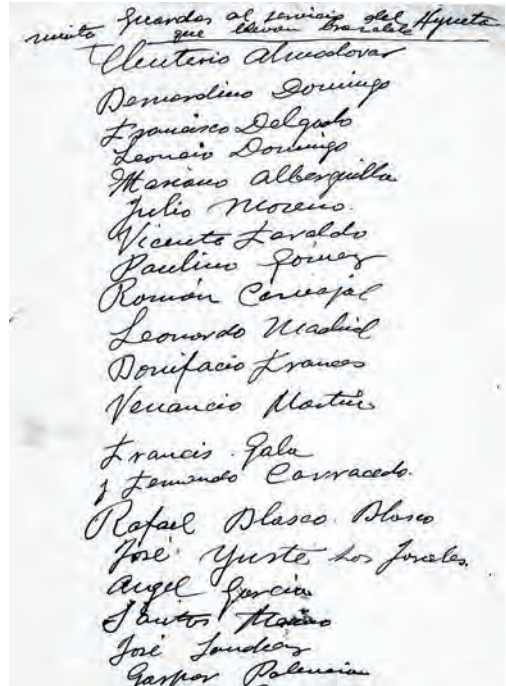 Guardas al servicio del Ayunta
miento que llevan brazalete
Eleuterio Almodovar
Bernardino Domingo
Francisco Delgado
Leoncio Domingo
Mariano Alberquilla
Julio Moreno.
Vicente
Paulino Gómez
Román Carvajal
Leonardo Madrid
Bonifacio Frances
Venancio Martin
Francis. Gala
y Fernando Carracedo.
Rafael Blasco Blasco
José Yuste Los
Angel Garcia
Santos
José Sanchez
Gaspar Palencia